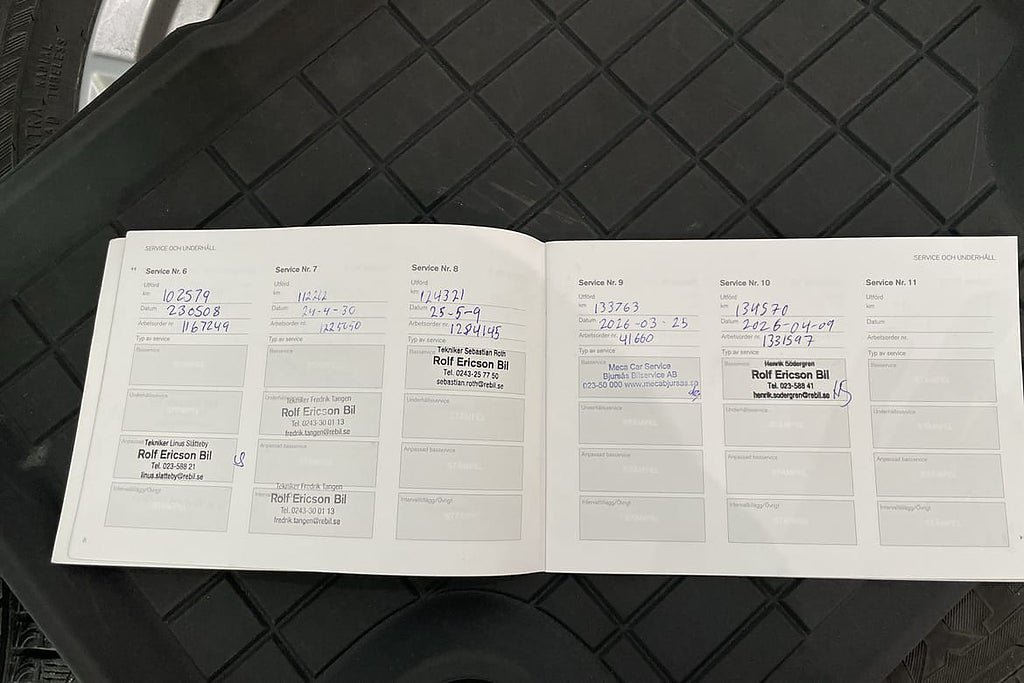 XTRA
RADIAL
TUBELESS
SERVICE OCH UNDERHÅLL
Service Nr. 6
Utförd
km 102579
Datum 230508
Arbetsorder nr. 1167249
Typ av service
Basservice
Underhållsservice
Tekniker Linus Slätteby
Rolf Ericson Bil
Tel. 023-588 21
linus.slatteby@rebil.se
Intervalltillägg/Övrigt
Service Nr. 7
Utförd
km 112212
Datum 24-4-30
Arbetsorder nr. 1225050
Typ av service
Basservice
Underhållsservice
Tekniker Fredrik Tangen
Rolf Ericson Bil
Tel. 0243-30 01 13
fredrik.tangen@rebil.se
Anpassad basservice
Tekniker Fredrik Tangen
Rolf Ericson Bil
Tel. 0243-30 01 13
fredrik.tangen@rebil.se
Service Nr. 8
Utförd
km 124321
Datum 25-5-9
Arbetsorder nr. 1284145
Typ av service
Basservice
Tekniker Sebastian Roth
Rolf Ericson Bil
Tel. 0243-25 77 50
sebastian.roth@rebil.se
Underhållsservice
Anpassad basservice
Intervalltillägg/Övrigt
8
SERVICE OCH UNDERHÅLL
Service Nr. 9
Utförd
km 133763
Datum 2026-03-25
Arbetsorder nr. 41660
Typ av service
Basservice
Meca Car Service
Bjursås Bilservice AB
023-50 000 www.mecabjursas.se
Underhållsservice
Anpassad basservice
Intervalltillägg/Övrigt
Service Nr. 10
Utförd
km 134570
Datum 2026-04-09
Arbetsorder nr. 1331597
Typ av service
Henrik Södergren
Rolf Ericson Bil
Tel. 023-588 41
henrik.sodergren@rebil.se
HS
Underhållsservice
Anpassad basservice
Intervalltillägg/Övrigt
Service Nr. 11
Utförd
km
Datum
Arbetsorder nr.
Typ av service
Basservice
Underhållsservice
Anpassad basservice
Intervalltillägg/Övrigt